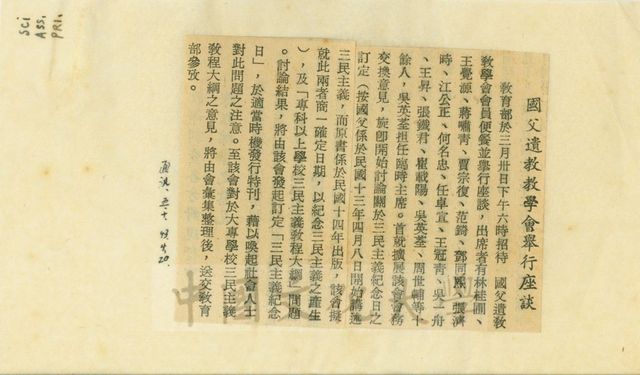 國父遺教教學會舉行座談
教育部於三月卅日下午六時招待　國父遺敎
敎學會會員便餐並舉行座談，出席者有林桂圃、
王覺源、蔣嘯青、賈宗復、范錡、鄧同熙、張濟
時、江公正、何名忠、任卓宣、王冠青、吳一舟
、王昇、張鐵君、崔載陽、吳英荃、周世輔等十
餘人，吳英荃担任臨時主席。首就擴展該會會務
交換意見，旋卽開始討論關於三民主義紀念日之
訂定（按國父係於民國十三年四月八日開始講述
三民主義，而原書係於民國十四年出版，該會擬
就此兩者商一確定日期，以紀念三民主義之產生
），及「專科以上學校三民主義敎程大綱」問題
。討論結果，將由該會發起訂定「三民主義紀念
日」，於適當時機發行特刊，藉以喚起社會人士
對此問題之注意。至該會對於大專學校三民主義
敎程大綱之意見，將由會彙集整理後，送交敎育
部參攷。
SCI
ASS.
PRI.
中國文化大學